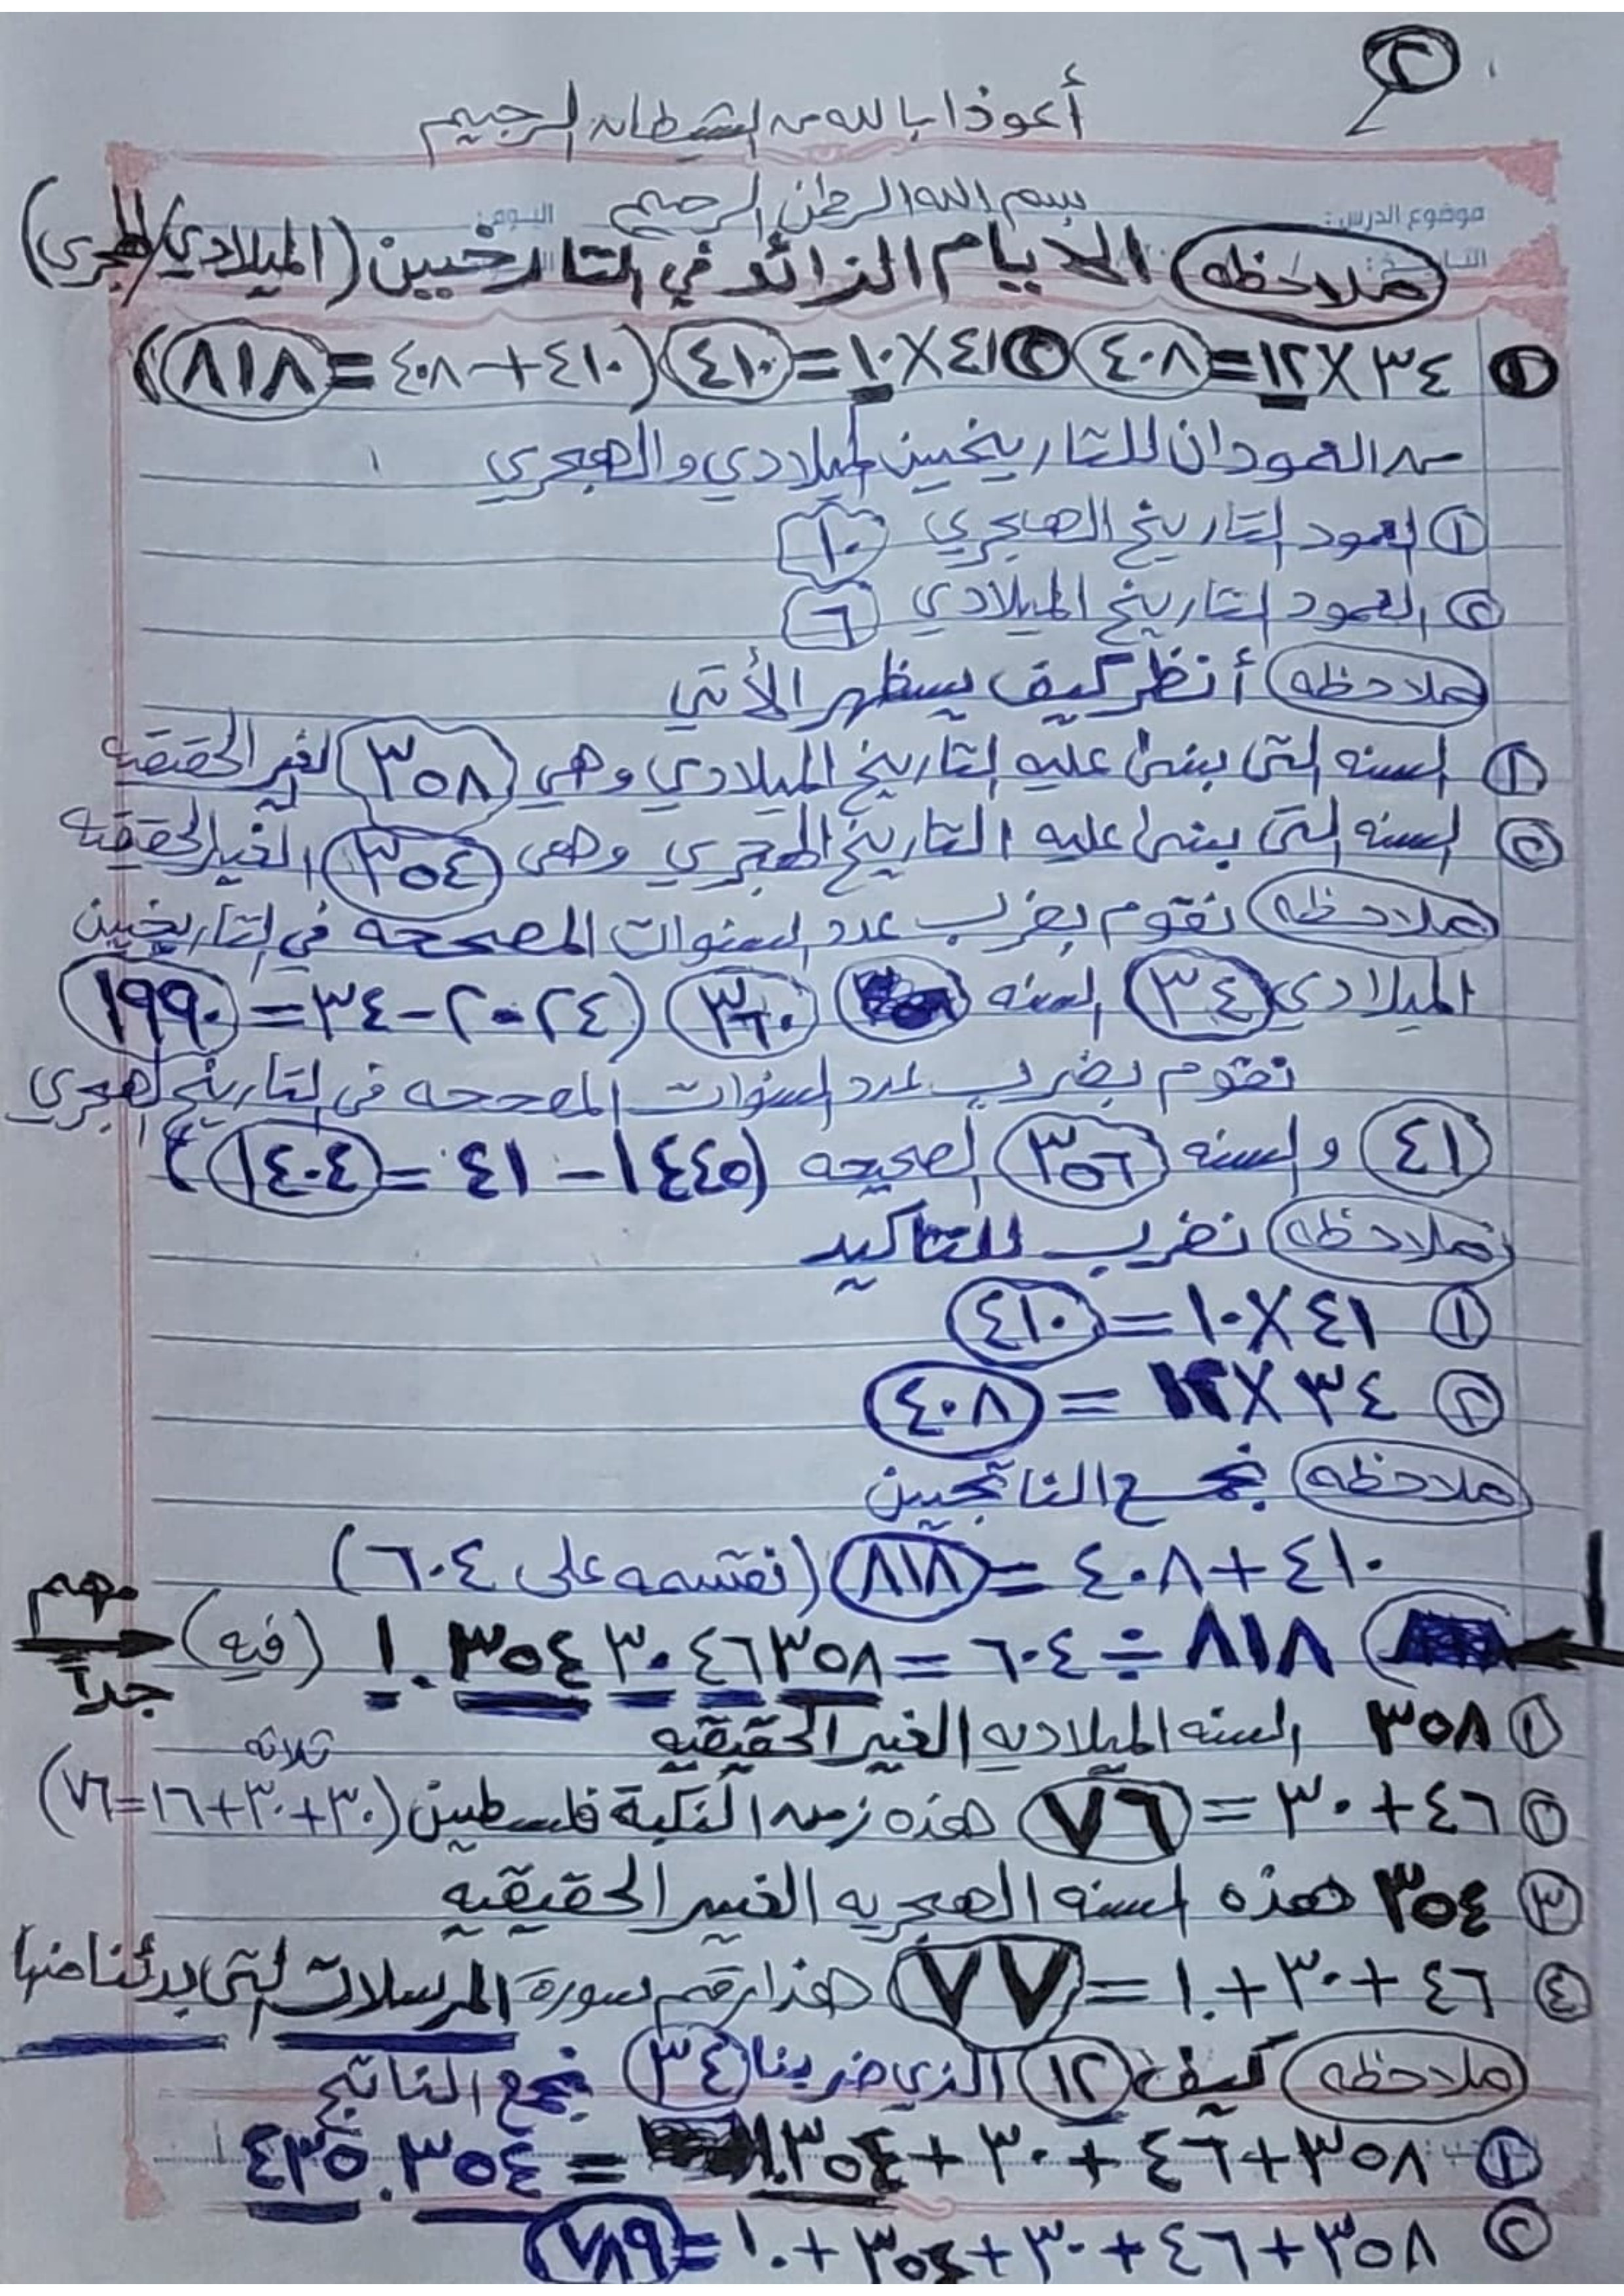 ٢
أعوذا بالله من الشيطان الرجيم
بسم الله الرحمن الرحيم
موضوع الدرس: اليوم:
ملاحظه الايام الزائد في التارخيين (الميلادي/الهجري)
١ ٣٤×١٢=٤٠٨ ٢ ٤١×١٠=٤١٠ (٤١٠+٤٠٨=٨١٨)
من العمودان للتاريخيين الميلادي والهجري
١ العمود التاريخ الهجري ١٠
٢ العمود التاريخ الميلادي ٦
ملاحظه أنظر كيف يسظهر الأتي
١ السنه التى بنىا عليه التاريخ الميلادي وهي ٣٥٨ الغير الحقيقه
٢ السنه التى بنىا عليه التاريخ الهجري وهى ٣٥٤ الغير الحقيقه
ملاحظه نقوم بضرب عدد السنوات المصححه في التاريخيين
الميلادي ٣٤ السنه ٣٦٠ (٢٠٢٤-٣٤=١٩٩٠
نقوم بضرب عدد السنوات المصححه في التاريخ الهجري
٤١ والسنه ٣٥٦ الصحيحه (١٤٤٥-٤١=١٤٠٤)
ملاحظه نضرب للتاكيد
١ ٤١×١٠=٤١٠
٢ ٣٤×١٢=٤٠٨
ملاحظه نجمع الناتجيين
٤١٠+٤٠٨=٨١٨ (نقسمه على ٦٠٤)
٨١٨÷٦٠٤=١.٣٥٤٣٠٤٦٣٥٨ (فيه) مهم جداً
١ ٣٥٨ السنه الميلاديه الغير الحقيقيه
٢ ٤٦+٣٠=٧٦ هذه زمن النكبة فلسطين (٣٠+٣٠+١٦=٧٦) ثلاثه
٣ ٣٥٤ هذه السنه الهجريه الغير الحقيقيه
٤ ٤٦+٣٠+١.=٧٧ هذا رقم سورة المرسلات التى بدئنا منها
ملاحظه كيف ١٢ الذي ضربنا ٣٤ نجمع الناتج
١ ٣٥٨+٤٦+٣٠+١.٣٥٤=٤٣٥.٣٥٤
٢ ٣٥٨+٤٦+٣٠+٣٥٤+١.=٧٨٩